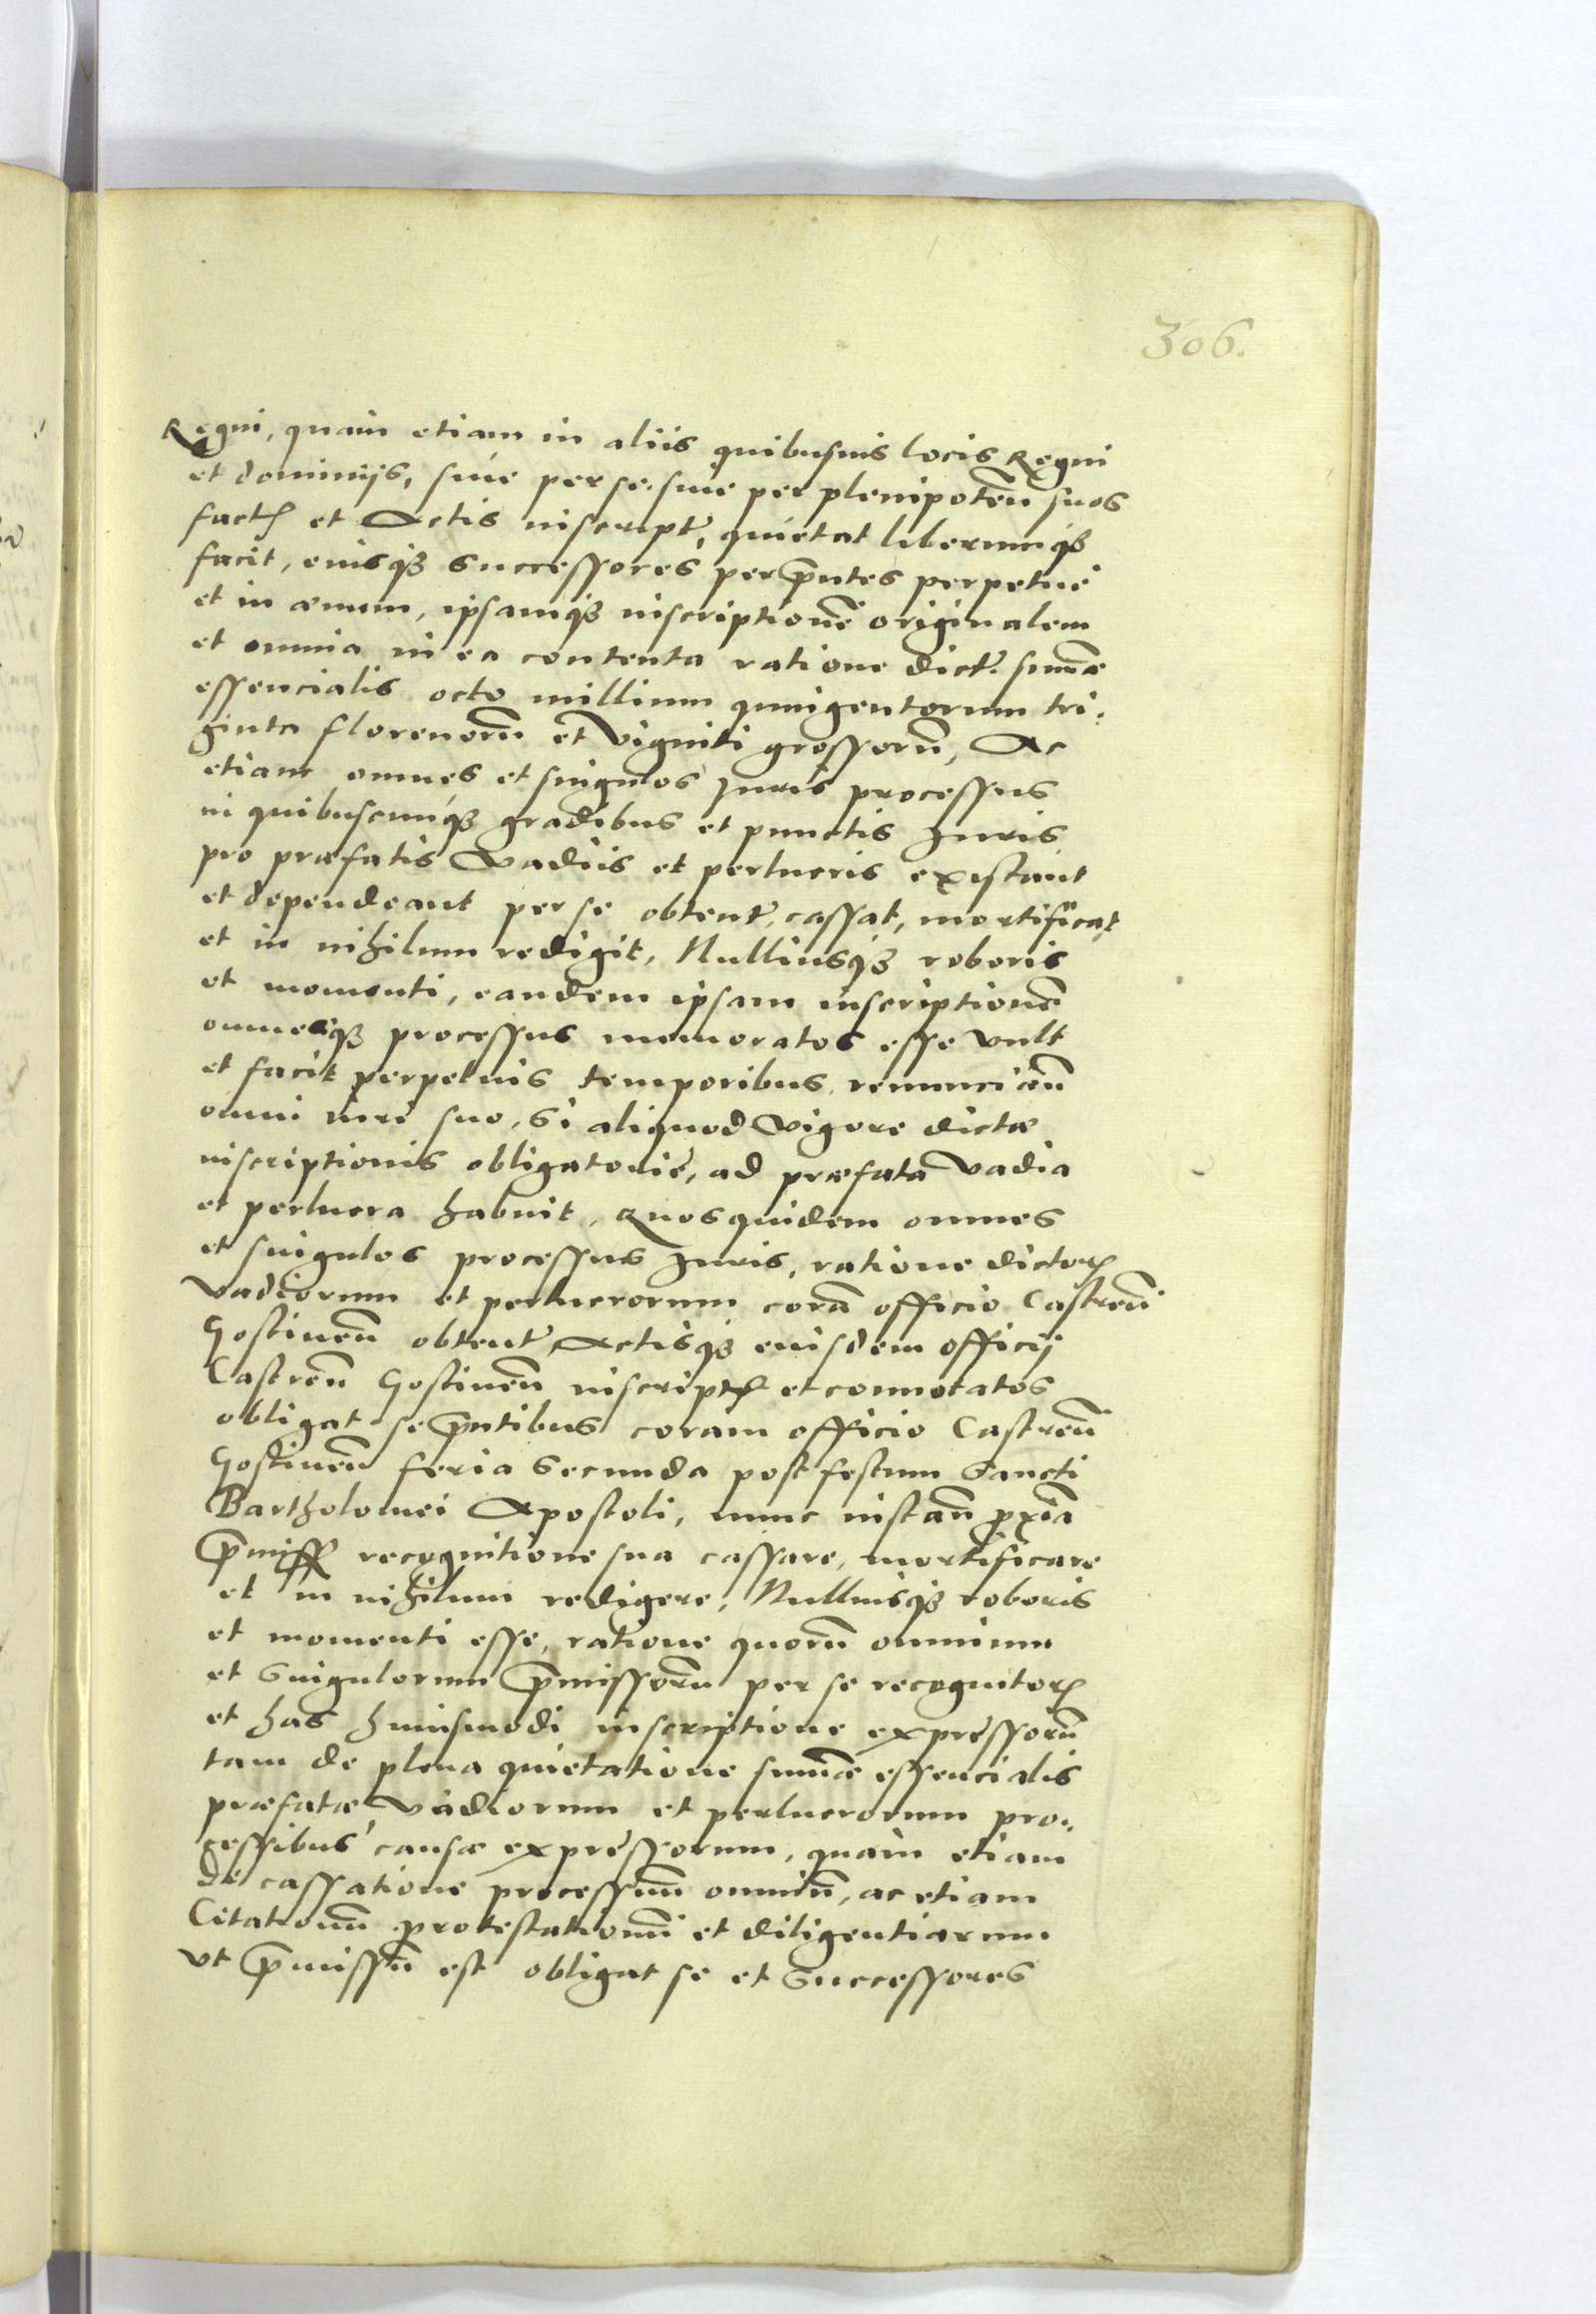 306.
Regni, quam etiam in aliis quibusuis locis Regni
et dominijs, siue per se siue per plenipoteñ suos
fact et Actis inscript, quietat liberumqꝫ
facit, eiusqꝫ successores per p̃ntes perpetue
et in æuum, ipsamqꝫ inscriptionẽ originalem
et omnia in ea contenta ratione dict. sum̃æ
essencialis octo millium quingentorum tri:
ginta florenorũ et viginti grossorũ, Ac
etiam omnes et singulos Juris processus
in quibuscunqꝫ gradibus et punctis Juris
pro præfatis vadiis et perlucris existant
et dependeant per se obtent, cassat, mortificat
et in nihilum redigit, Nulliusqꝫ roboris
et momenti, eandem ipsam inscriptionẽ
omnesqꝫ processus memoratos esse vult
et facit perpetuis temporibus, renunciañ
omni iuri suo, si aliquod vigore dictæ
inscriptionis obligatoriæ, ad præfata vadia
et perlucra habuit, Quosquidem omnes
et singulos processus Juris, ratione dictorꝝ
vadiorum et perlucrorum corã officio Castreñ
Gostineñ obtent Actisqꝫ eiusdem officij
Castreñ Gostineñ inscript et connotatos
obligat se p̃ntibus coram officio Castreñ
Gostineñ feria secunda post festum Sancti
Bartholomei Apostoli, nunc instañ prox̃ia
p̃miss recognitione sua cassare, mortificare
et in nihilum redigere, Nulliusqꝫ roboris
et momenti esse, ratione quorũ omnium
et singulorum p̃missorũ per se recognitorꝝ
et has huiusmodi inscriptione expressorũ
tam de plena quietatione sum̃æ essencialis
præfatæ vadiorum et perlucrorum pro:
cessibus causæ expressorum, quam etiam
de cassatione processuũ omniũ, ac etiam
Citationũ protestationũ et diligentiarum
vt p̃missũ est obligat se et successores